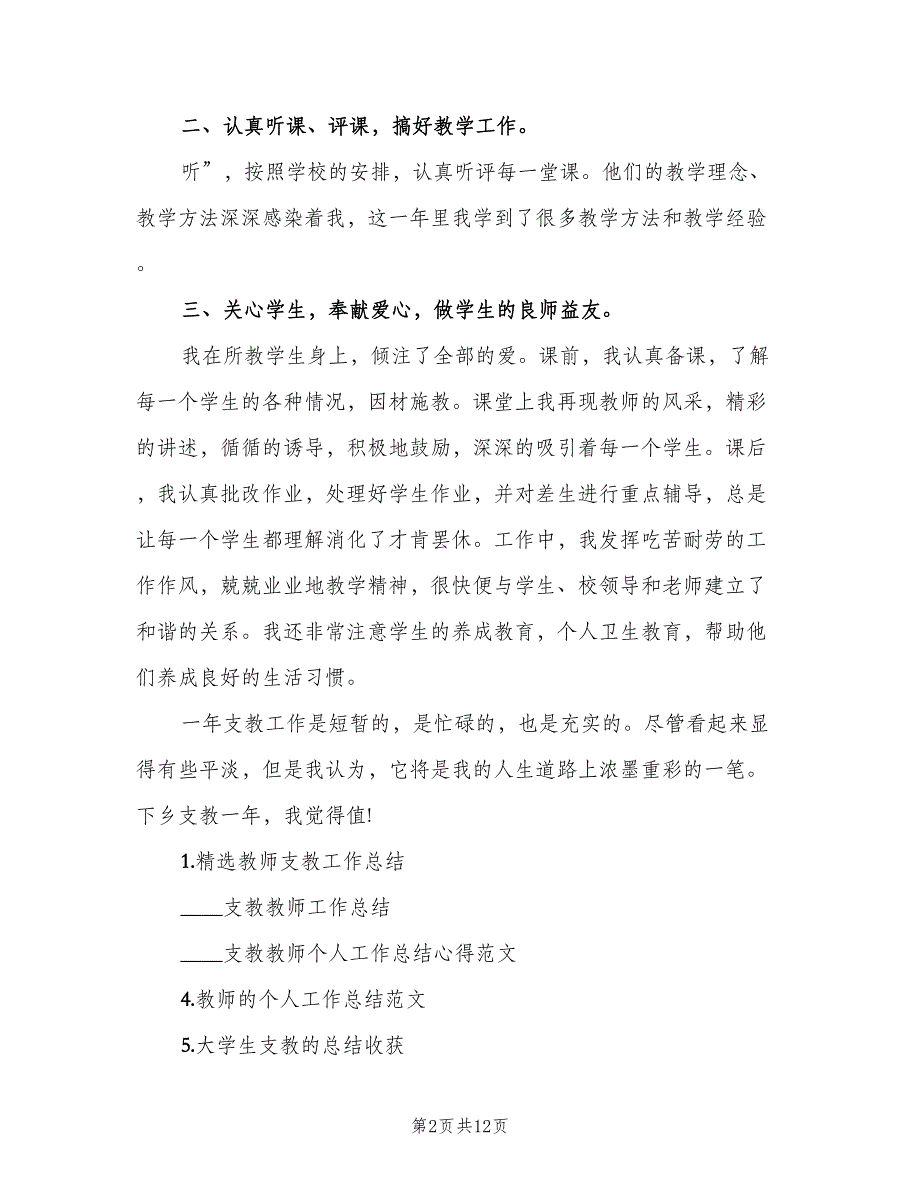 二、认真听课、评课，搞好教学工作。
听”，按照学校的安排，认真听评每一堂课。他们的教学理念、
教学方法深深感染着我，这一年里我学到了很多教学方法和教学经验
。
三、关心学生，奉献爱心，做学生的良师益友。
我在所教学生身上，倾注了全部的爱。课前，我认真备课，了解
每一个学生的各种情况，因材施教。课堂上我再现教师的风采，精彩
的讲述，循循的诱导，积极地鼓励，深深的吸引着每一个学生。课后
，我认真批改作业，处理好学生作业，并对差生进行重点辅导，总是
让每一个学生都理解消化了才肯罢休。工作中，我发挥吃苦耐劳的工
作作风，兢兢业业地教学精神，很快便与学生、校领导和老师建立了
和谐的关系。我还非常注意学生的养成教育，个人卫生教育，帮助他
们养成良好的生活习惯。
一年支教工作是短暂的，是忙碌的，也是充实的。尽管看起来显
得有些平淡，但是我认为，它将是我的人生道路上浓墨重彩的一笔。
下乡支教一年，我觉得值!
1.精选教师支教工作总结
____支教教师工作总结
____支教教师个人工作总结心得范文
4.教师的个人工作总结范文
5.大学生支教的总结收获
第2页共12页